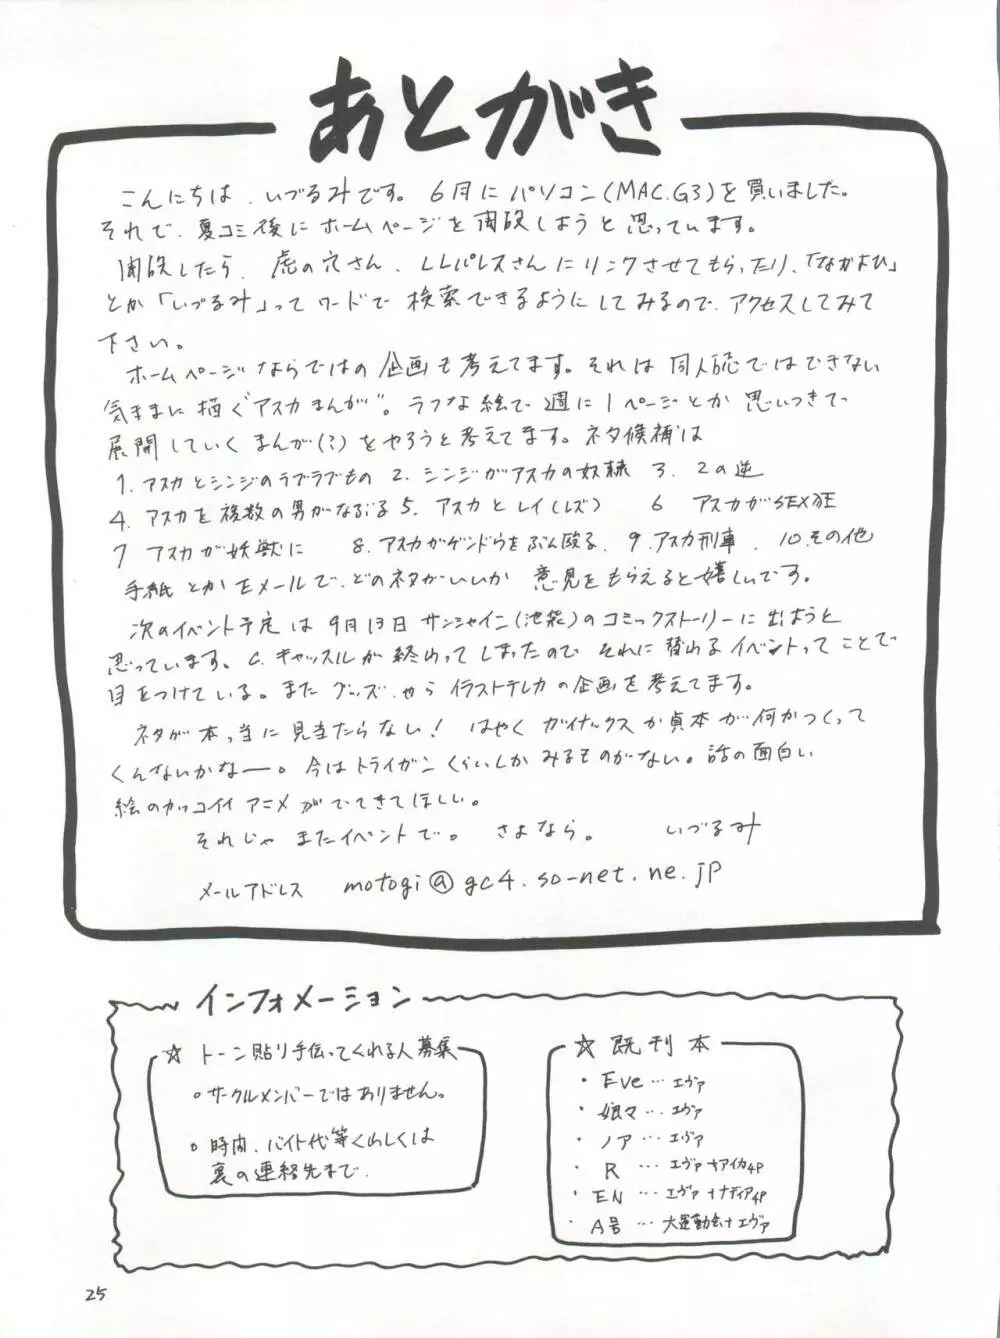 あとがき
こんにちは、いづるみです。6月にパソコン(MAC.G3)を買いました。
それで、夏コミ後にホームページを開設しようと思っています。
開設したら、虎の穴さん、LLパレスさんにリンクさせてもらったり、「なかよひ」
とか「いづるみ」ってワードで検索できるようにしてみるので、アクセスしてみて
下さい。
ホームページならではの企画も考えてます。それは同人誌ではできない
気ままに描く"アスカまんが"。ラフな絵で週に1ページとか思いつきで
展開していくまんが(?)をやろうと考えてます。ネタ候補は
1. アスカとシンジのラブラブもの 2. シンジがアスカの奴隷 3. 2の逆
4. アスカを複数の男がなぶる 5. アスカとレイ(レズ) 6 アスカがSEX狂
7 アスカが妖獣に 8. アスカがゲンドウをぶん殴る 9. アスカ刑事 10. その他
手紙とかEメールで、どのネタがいいか意見をもらえると嬉しいです。
次のイベント予定は9月13日サンシャイン(池袋)のコミックストーリーに出ようと
思っています。C.キャッスルが終わってしまったので それに替わるイベントってことで
目をつけている。またグッズやらイラストテレカの企画を考えてます。
ネタが本っ当に見当たらない! はやくガイナックスか貞本が何かつくって
くんないかなー。今はトライガンくらいしかみるものがない。話の面白い
絵のカッコイイアニメがでてきてほしい。
それじゃまたイベントで。さよなら。 いづるみ
メールアドレス motogi@gc4.so-net.ne.jp
インフォメーション
☆ トーン貼り手伝ってくれる人募集
○サークルメンバーではありません。
○時間、バイト代等くわしくは
裏の連絡先まで.
☆ 既刊本
・Eve…エヴァ
・娘々…エヴァ
・ノア…エヴァ
・R…エヴァ+アイカ4P
・EN…エヴァ+ナディア4P
・A号…大運動会+エヴァ
25